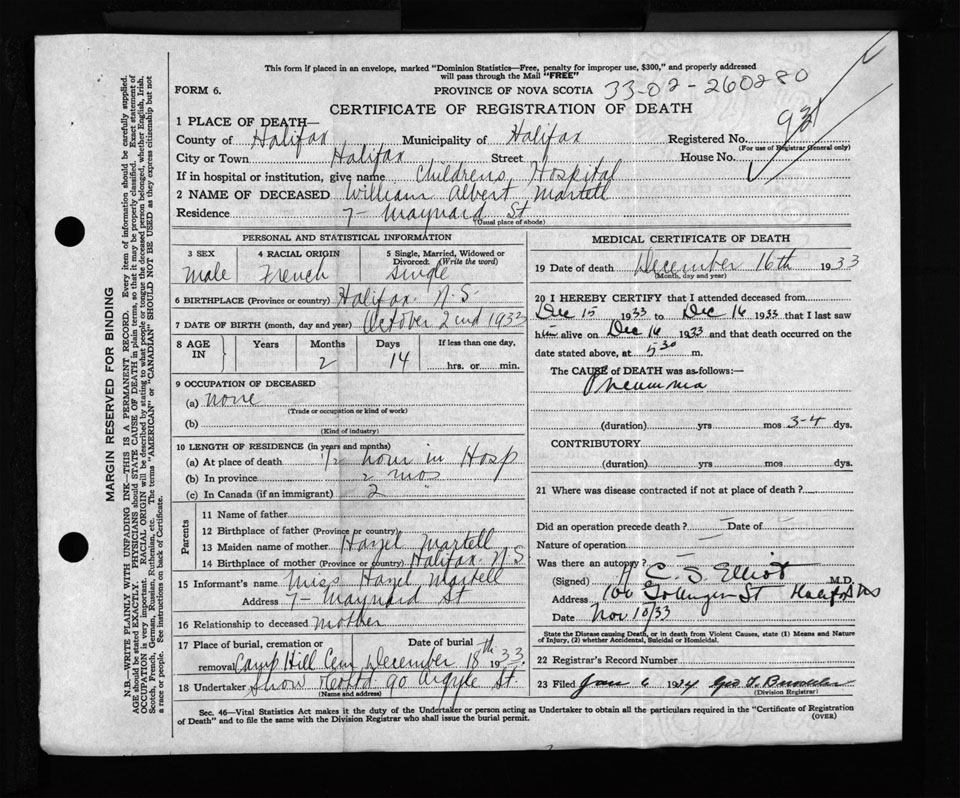 This form if placed in an envelope, marked "Dominion Statistics—Free, penalty for improper use, $300," and properly addressed
will pass through the Mail "FREE"
FORM 6.
PROVINCE OF NOVA SCOTIA 33-02-260280
CERTIFICATE OF REGISTRATION OF DEATH
1 PLACE OF DEATH—
County of Halifax Municipality of Halifax Registered No.
(For use of Registrar General only)
City or Town Halifax Street House No.
If in hospital or institution, give name Childrens Hospital
2 NAME OF DECEASED William Albert Martell
Residence 7- Maynard St
(Usual place of abode)
PERSONAL AND STATISTICAL INFORMATION
3 SEX male
4 RACIAL ORIGIN French
5 Single, Married, Widowed or Divorced. (Write the word) single
6 BIRTHPLACE (Province or country) Halifax. N.S.
7 DATE OF BIRTH (month, day and year) October 2nd 1933
8 AGE IN Years Months Days If less than one day,
2 14 hrs. or min.
9 OCCUPATION OF DECEASED
(a) none
(Trade or occupation or kind of work)
(b)
(Kind of industry)
10 LENGTH OF RESIDENCE (in years and months)
(a) At place of death 1/2 hour in Hosp
(b) In province 2 mos
(c) In Canada (if an immigrant) 2 "
Parents
11 Name of father
12 Birthplace of father (Province or country)
13 Maiden name of mother Hazel Martell
14 Birthplace of mother (Province or country) Halifax N.S.
15 Informant's name Miss Hazel Martell
Address 7- Maynard St
16 Relationship to deceased mother
17 Place of burial, cremation or removal Camp Hill Cem Date of burial December 18th 1933.
18 Undertaker Snow & Co Ltd 90 Argyle St.
(Name and address)
MEDICAL CERTIFICATE OF DEATH
19 Date of death December 16th 1933
(Month, day and year)
20 I HEREBY CERTIFY that I attended deceased from
Dec 15 1933 to Dec 16 1933 that I last saw
him alive on Dec 16 1933 and that death occurred on the
date stated above, at 5 30 m.
The CAUSE of DEATH was as follows:—
Pneumonia
(duration) yrs mos 3-4 dys.
CONTRIBUTORY
(duration) yrs. mos. dys.
21 Where was disease contracted if not at place of death?
Did an operation precede death? — Date of —
Nature of operation —
Was there an autopsy? —
(Signed) C. S. Elliot M.D.
Address 106 Gottingen St Halifax NS
Date Nov 10/33
State the Disease causing Death, or in death from Violent Causes, state (1) Means and Nature
of Injury, (2) whether Accidental, Suicidal or Homicidal.
22 Registrar's Record Number
23 Filed Jan 6 1934
(Division Registrar)
Sec. 46—Vital Statistics Act makes it the duty of the Undertaker or person acting as Undertaker to obtain all the particulars required in the "Certificate of Registration
of Death" and to file the same with the Division Registrar who shall issue the burial permit.
(OVER)
MARGIN RESERVED FOR BINDING
N.B.—WRITE PLAINLY WITH UNFADING INK—THIS IS A PERMANENT RECORD. Every item of information should be carefully supplied.
AGE should be stated EXACTLY. PHYSICIANS should STATE CAUSE OF DEATH in plain terms, so that it may be properly classified. Exact statement of
OCCUPATION is very important. RACIAL ORIGIN will be described by stating to what people or tongue the deceased person belonged, whether English, Irish,
Scotch, French, German, Russian, Ruthenian, etc. The terms "AMERICAN" or "CANADIAN" SHOULD NOT BE USED as they express citizenship but not
a race or people. See instructions on back of Certificate.